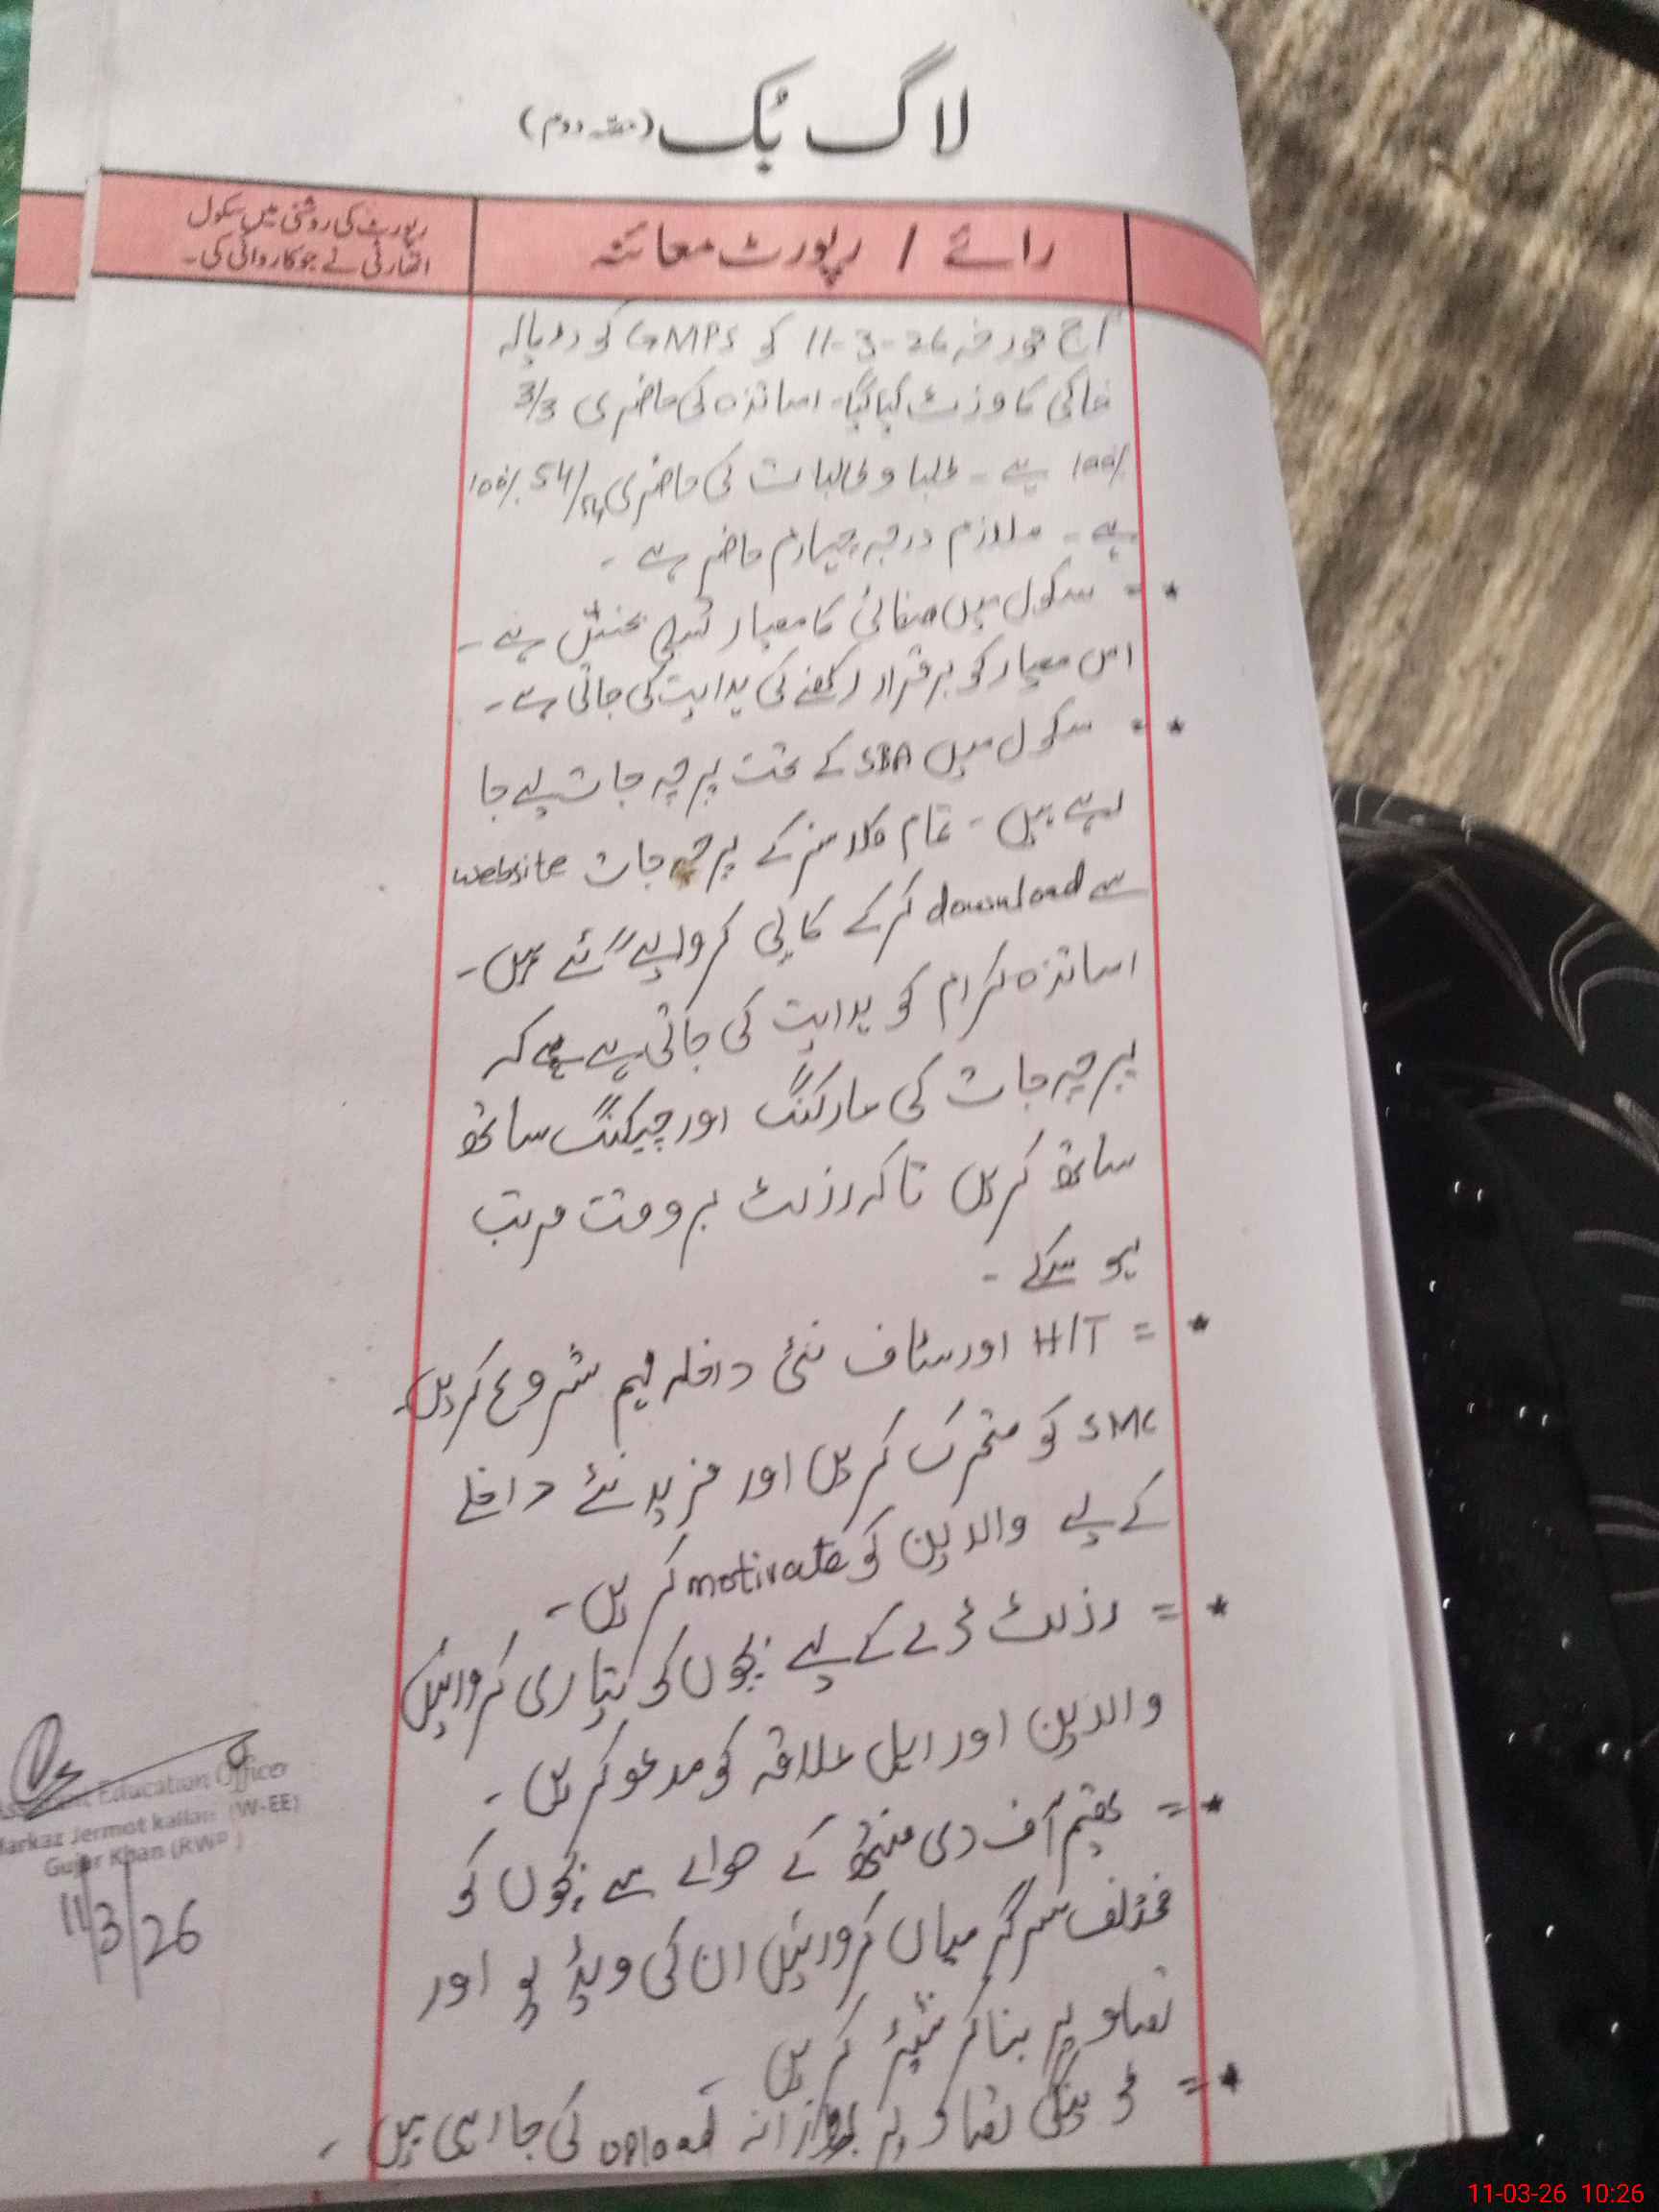 لاگ بُک (حصہ دوم)
رائے / رپورٹ معائنہ
رپورٹ کی روشنی میں سکول
اتھارٹی نے جو کاروائی کی۔
آج مورخہ 26-3-11 کو GMPS کو دوبالہ
خاکی کا وزٹ کیا گیا۔ اساتذہ کی حاضری 3/3
100% ہے ۔ طلبا و طالبات کی حاضری 54/54 100%
ہے ۔ ملازم درجہ چہارم حاضر ہے ۔
* = سکول میں صفائی کا معیار تسلی بخش ہے ۔
اس معیار کو برقرار رکھنے کی ہدایت کی جاتی ہے ۔
* = سکول میں SBA کے تحت پرچہ جات لیے جا
رہے ہیں ۔ تمام کلاسز کے پرچہ جات website
سے download کر کے کاپی کروائے گئے ہیں ۔
اساتذہ کرام کو ہدایت کی جاتی ہے کہ
پرچہ جات کی مارکنگ اور چیکنگ ساتھ
ساتھ کریں تاکہ رزلٹ بروقت مرتب
ہو سکے ۔
* = H/T اور سٹاف نئی داخلہ مہم شروع کریں۔
SMC کو متحرک کریں اور مزید نئے داخلے
کے لیے والدین کو motivate کریں ۔
* = رزلٹ ڈے کے لیے بچوں کی تیاری کروائیں
والدین اور اہل علاقہ کو مدعو کریں ۔
* = تھیم آف دی منتھ کے حوالے سے بچوں کو
مختلف سرگرمیاں کروائیں ان کی ویڈیو اور
تصاویر بنا کر شیئر کریں
* = ڈینگی تصاویر روزانہ upload کی جا رہی ہیں ۔
Assistant Education Officer
Markaz Jermot kallan (W-EE)
Gujar Khan (RWP)
11/3/26
11-03-26 10:26